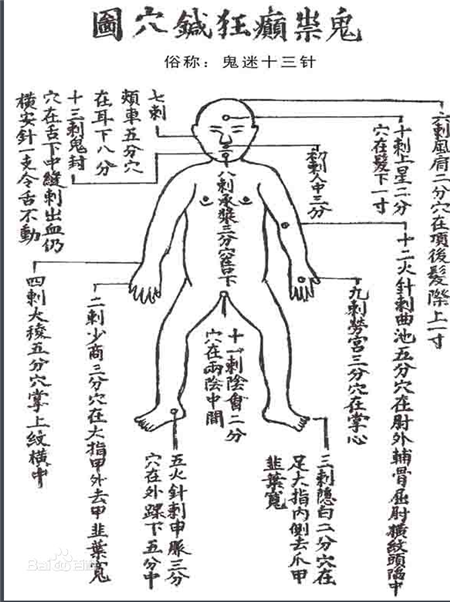 鬼祟癲狂鍼穴圖
俗称：鬼迷十三针
六刺風府二分穴在頂後髮際上一寸
十刺上星二分
穴在髮下一寸
十二火針刺曲池五分穴在肘外輔骨屈肘橫紋頭陷中
刺人中三分
九刺勞宮三分穴在掌心
三刺隐白二分穴在
足大指內側去爪甲
韭葉寬
八刺承漿三分穴在唇下
十一刺陰會二分
穴在兩陰中間
五火針刺申脈三分
穴在外踝下五分中
七刺
頰車五分穴
在耳下八分
十三刺鬼封
穴在舌下中縫刺出血仍
橫安針一支令舌不動
二刺少商三分穴在大指甲外去甲韭葉寬
四刺大稜五分穴掌上紋橫中
Bai百科